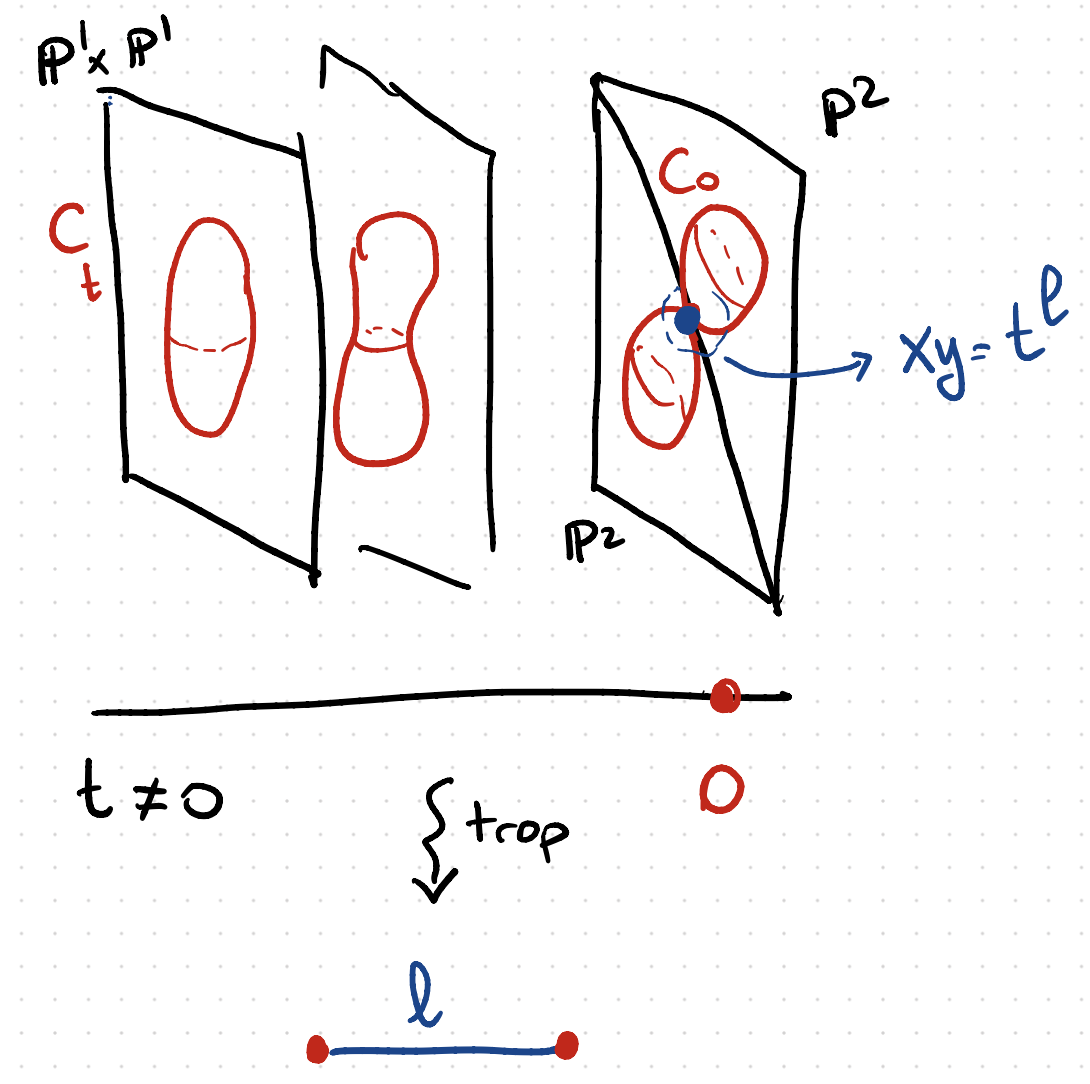 ℙ¹ × ℙ¹
ℙ²
C₀
C_t
xy = t^ℓ
ℙ²
t ≠ 0
0
trop
ℓ